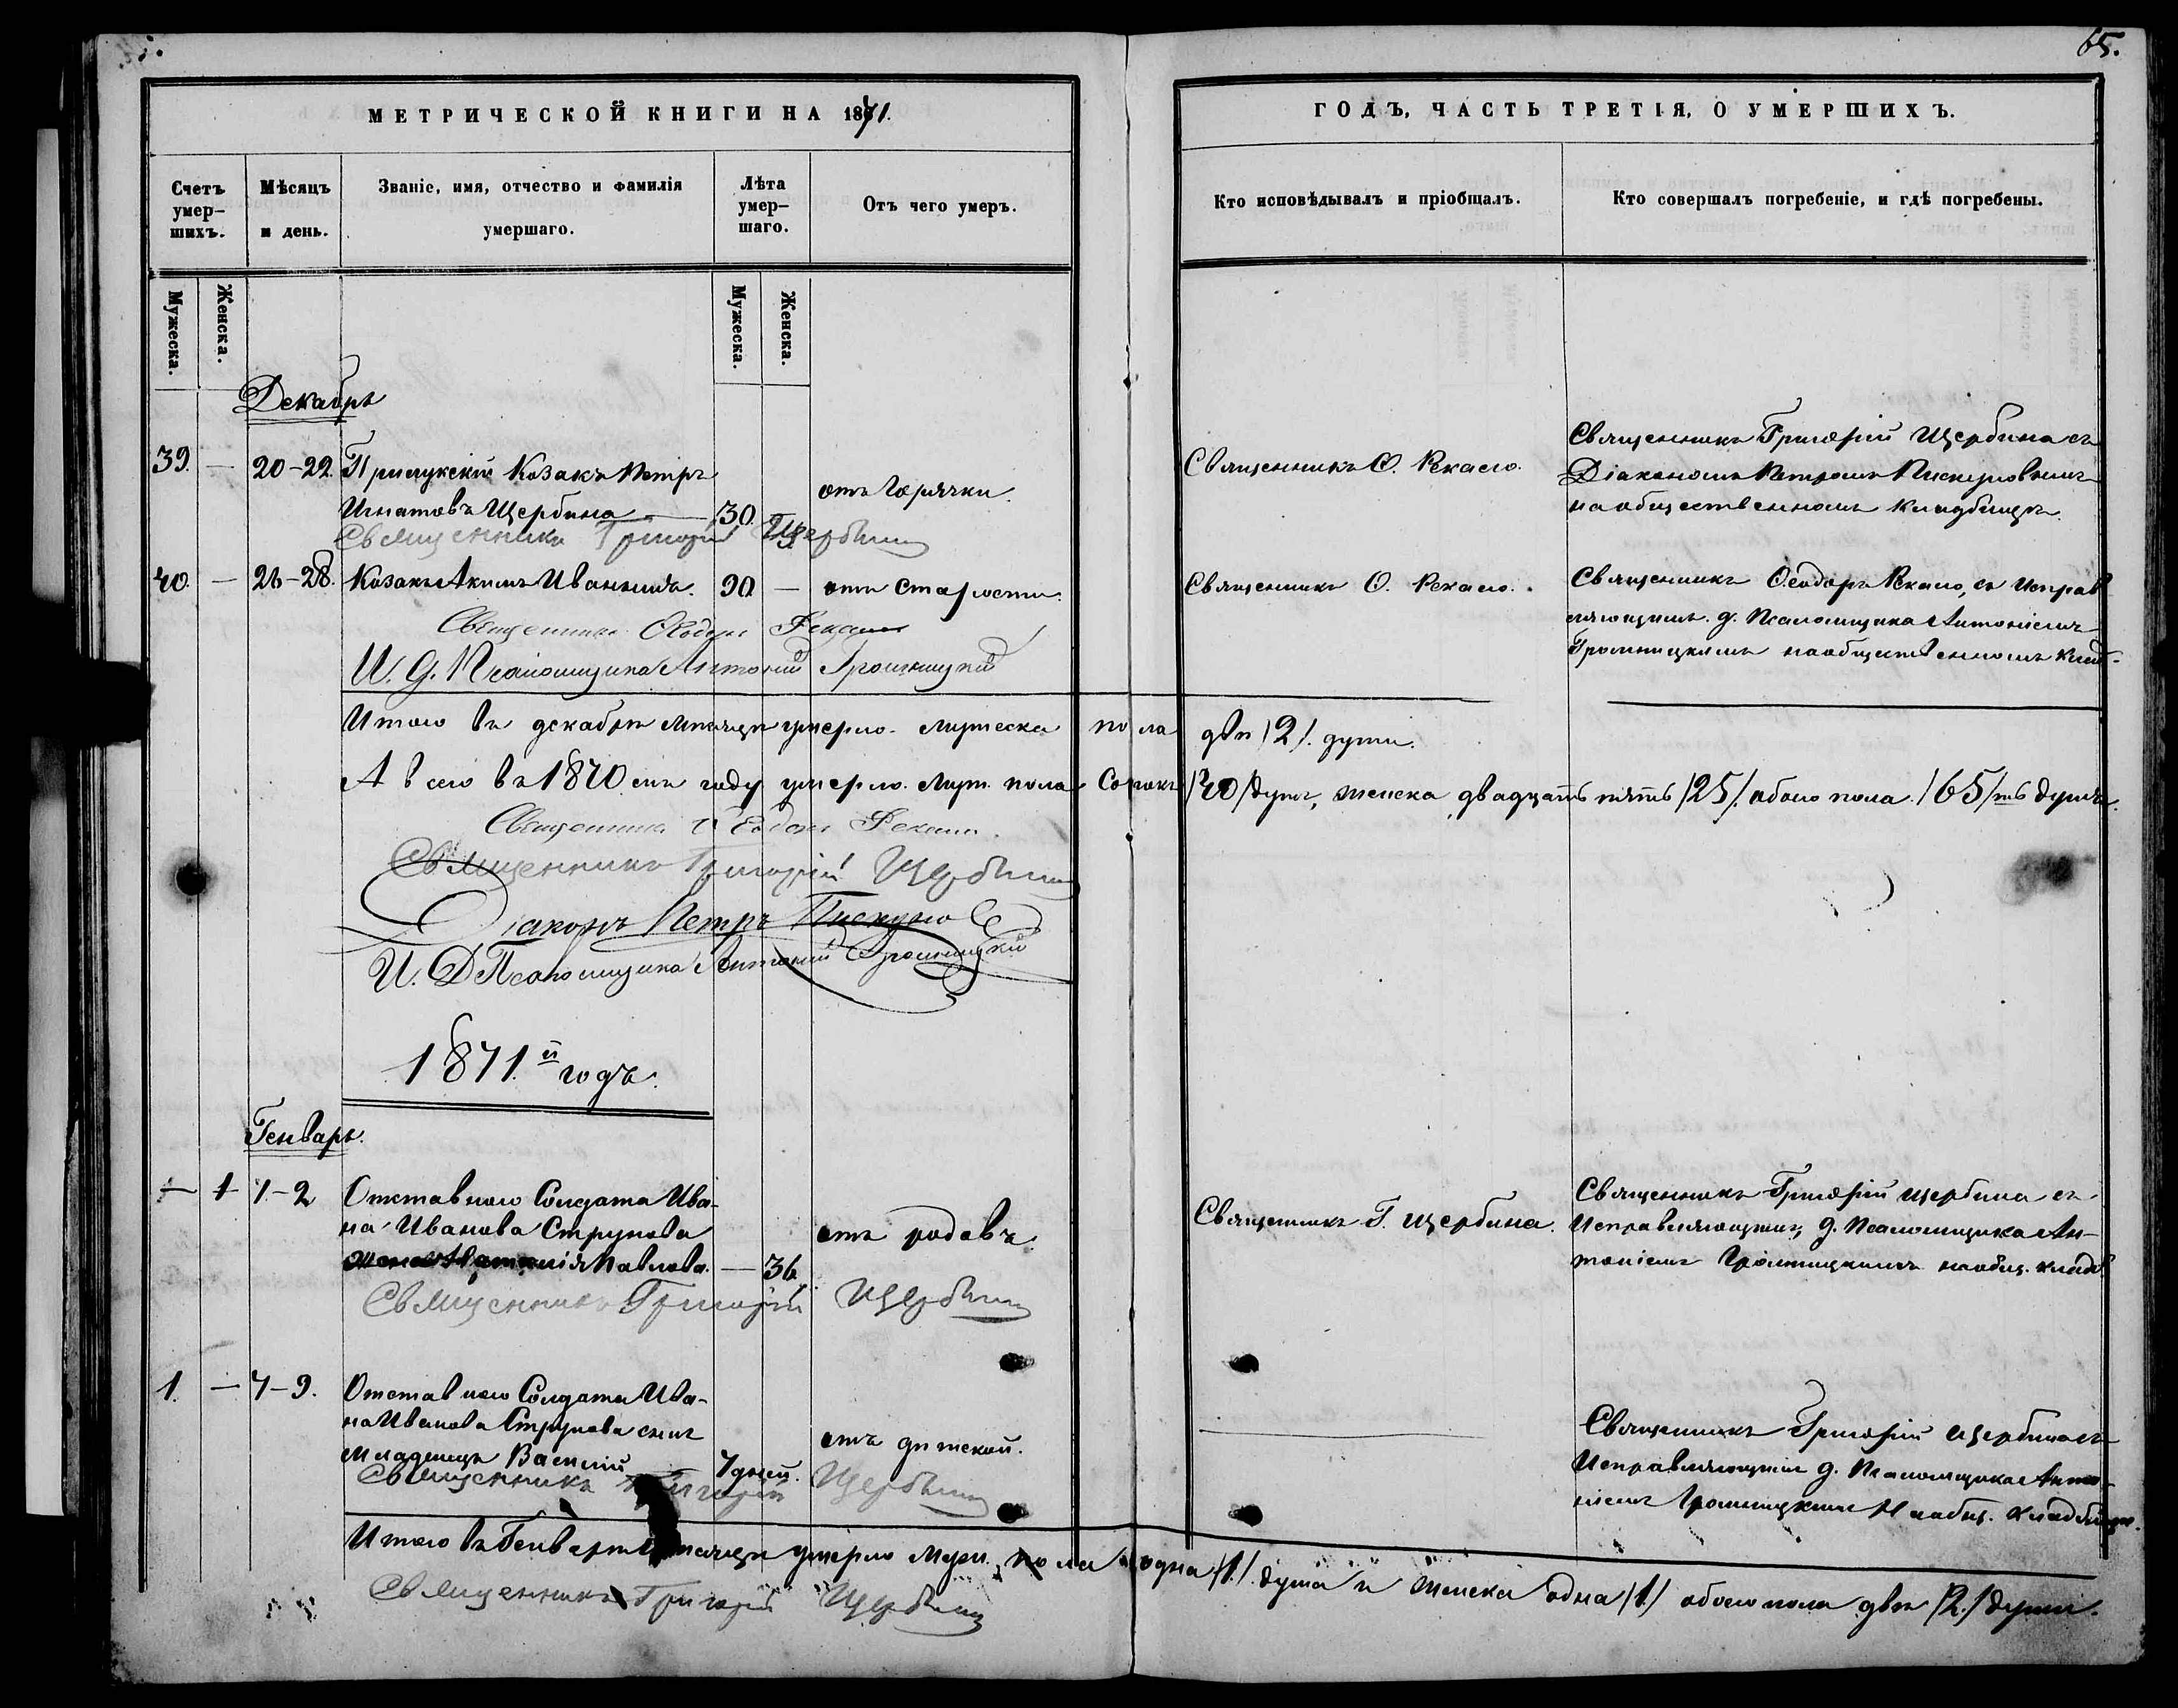 65.
МЕТРИЧЕСКОЙ КНИГИ НА 1871.
ГОДЪ, ЧАСТЬ ТРЕТІЯ, О УМЕРШИХЪ.
Счетъ умер-шихъ.
Мѣсяцъ и день.
Званіе, имя, отчество и фамилія умершаго.
Лѣта умер-шаго.
Отъ чего умеръ.
Кто исповѣдывалъ и пріобщалъ.
Кто совершалъ погребеніе, и гдѣ погребены.
Мужеска.
Женска.
Мужеска.
Женска.
Декабрь
39. — 20-22. Прилукскій Козакъ Петръ
Игнатовъ Щербина — 30.
отъ горячки.
Священникъ Григорій Щербина
Священникъ Ѳ. Рекало.
Священникъ Григорій Щербина съ
Діакономъ Петромъ Пискуновымъ
на общественномъ кладбищѣ.
40. — 26-28. Козакъ Акимъ Иваньина. 90. — отъ старости.
Священникъ Ѳеодоръ Рекало
И. д. Псаломщика Антоній Громницкій
Священникъ Ѳ. Рекало.
Священникъ Ѳеодоръ Рекало, съ исправ
ляющимъ д. Псаломщика Антоніемъ
Громницкимъ на общественномъ клад-
Итого въ декабрѣ мѣсяцѣ умерло мужеска пола двѣ /2/. души.
А всего въ 1870 мъ году умерло муж. пола сорокъ /40/ душъ, женска двадцать пять /25/. обоего пола /65/ть душъ.
Священникъ Ѳеодоръ Рекало.
Священникъ Григорій Щербина
Діаконъ Петръ Пискуно
И. Д. Псаломщика Антоній Громницкій
1871.й годъ.
Генварь.
— 1 1-2 Отставнаго Солдата Ива-
на Иванова Струнова
жена Наталія Павлова. — 36
отъ родовъ.
Священникъ Григорій Щербина
Священникъ Г. Щербина.
Священникъ Григорій Щербина съ
Исправляющимъ д. Псаломщика Ан-
тоніемъ Громницкимъ на общ. кладб.
1. — 7-9. Отставнаго Солдата Ива-
на Иванова Струнова сынъ
младенецъ Василій 7 дней.
отъ дѣтской.
Священникъ Григорій Щербина
Священникъ Григорій Щербина съ
Исправляющимъ д. Псаломщика Анто-
ніемъ Громницкимъ На общ. кладбищѣ.
Итого въ Генварѣ мѣсяцѣ умерло муж. пола одна /1/. душа и женска одна /1/ обоего пола двѣ /2./ души.
Священникъ Григорій Щербина